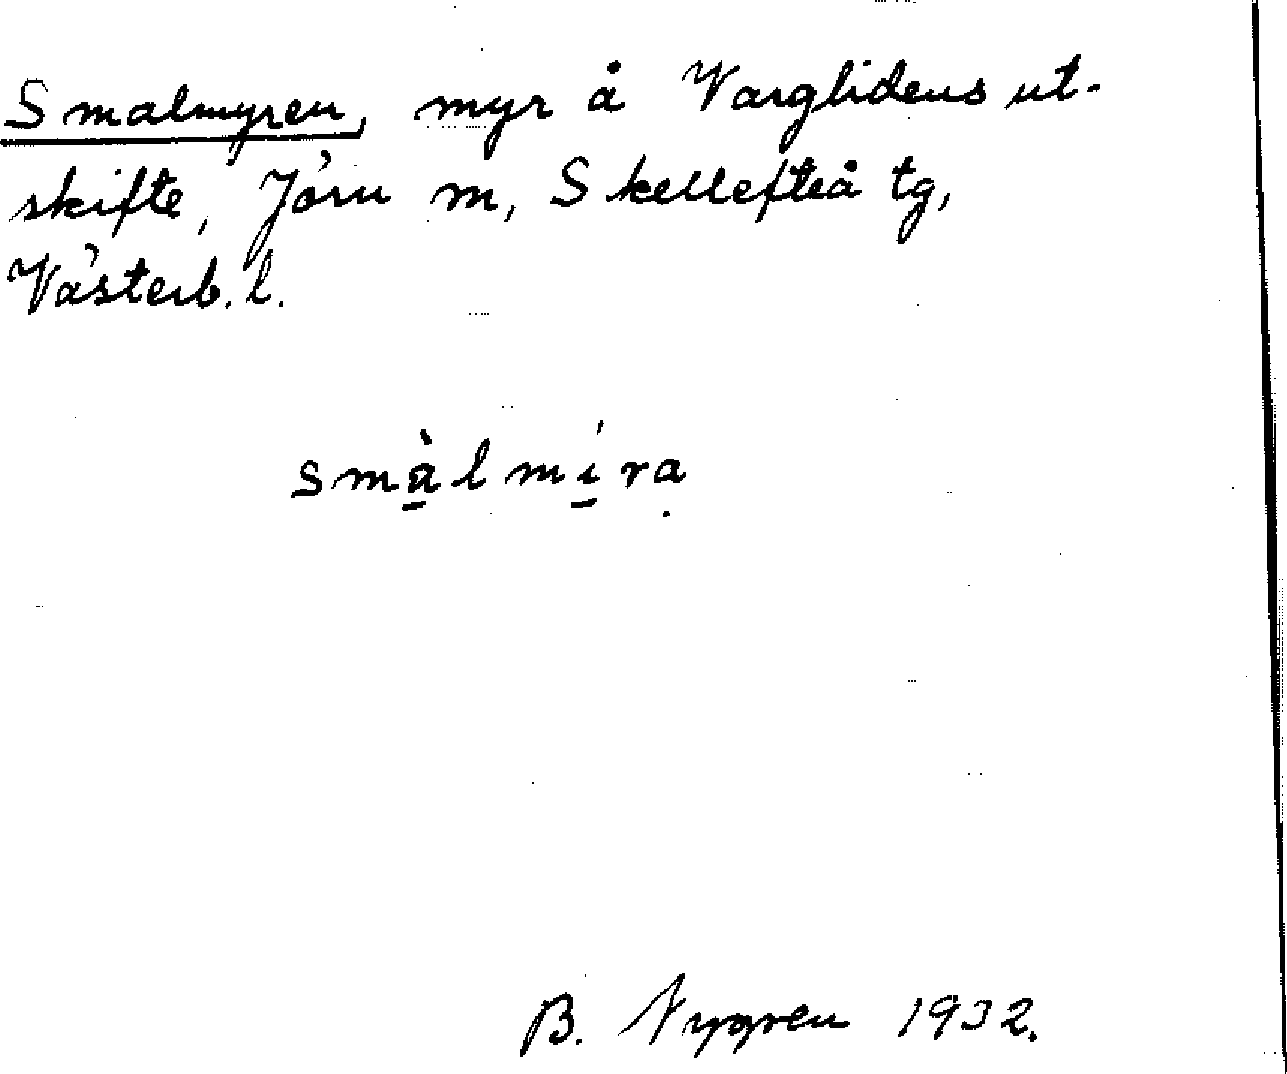 Smalmyren, myr å Varglidens ut-
skifte, Jörn m, Skellefteå tg,
Västerb. l.
smà̠lmí̠rạ
B. Nygren 1932.